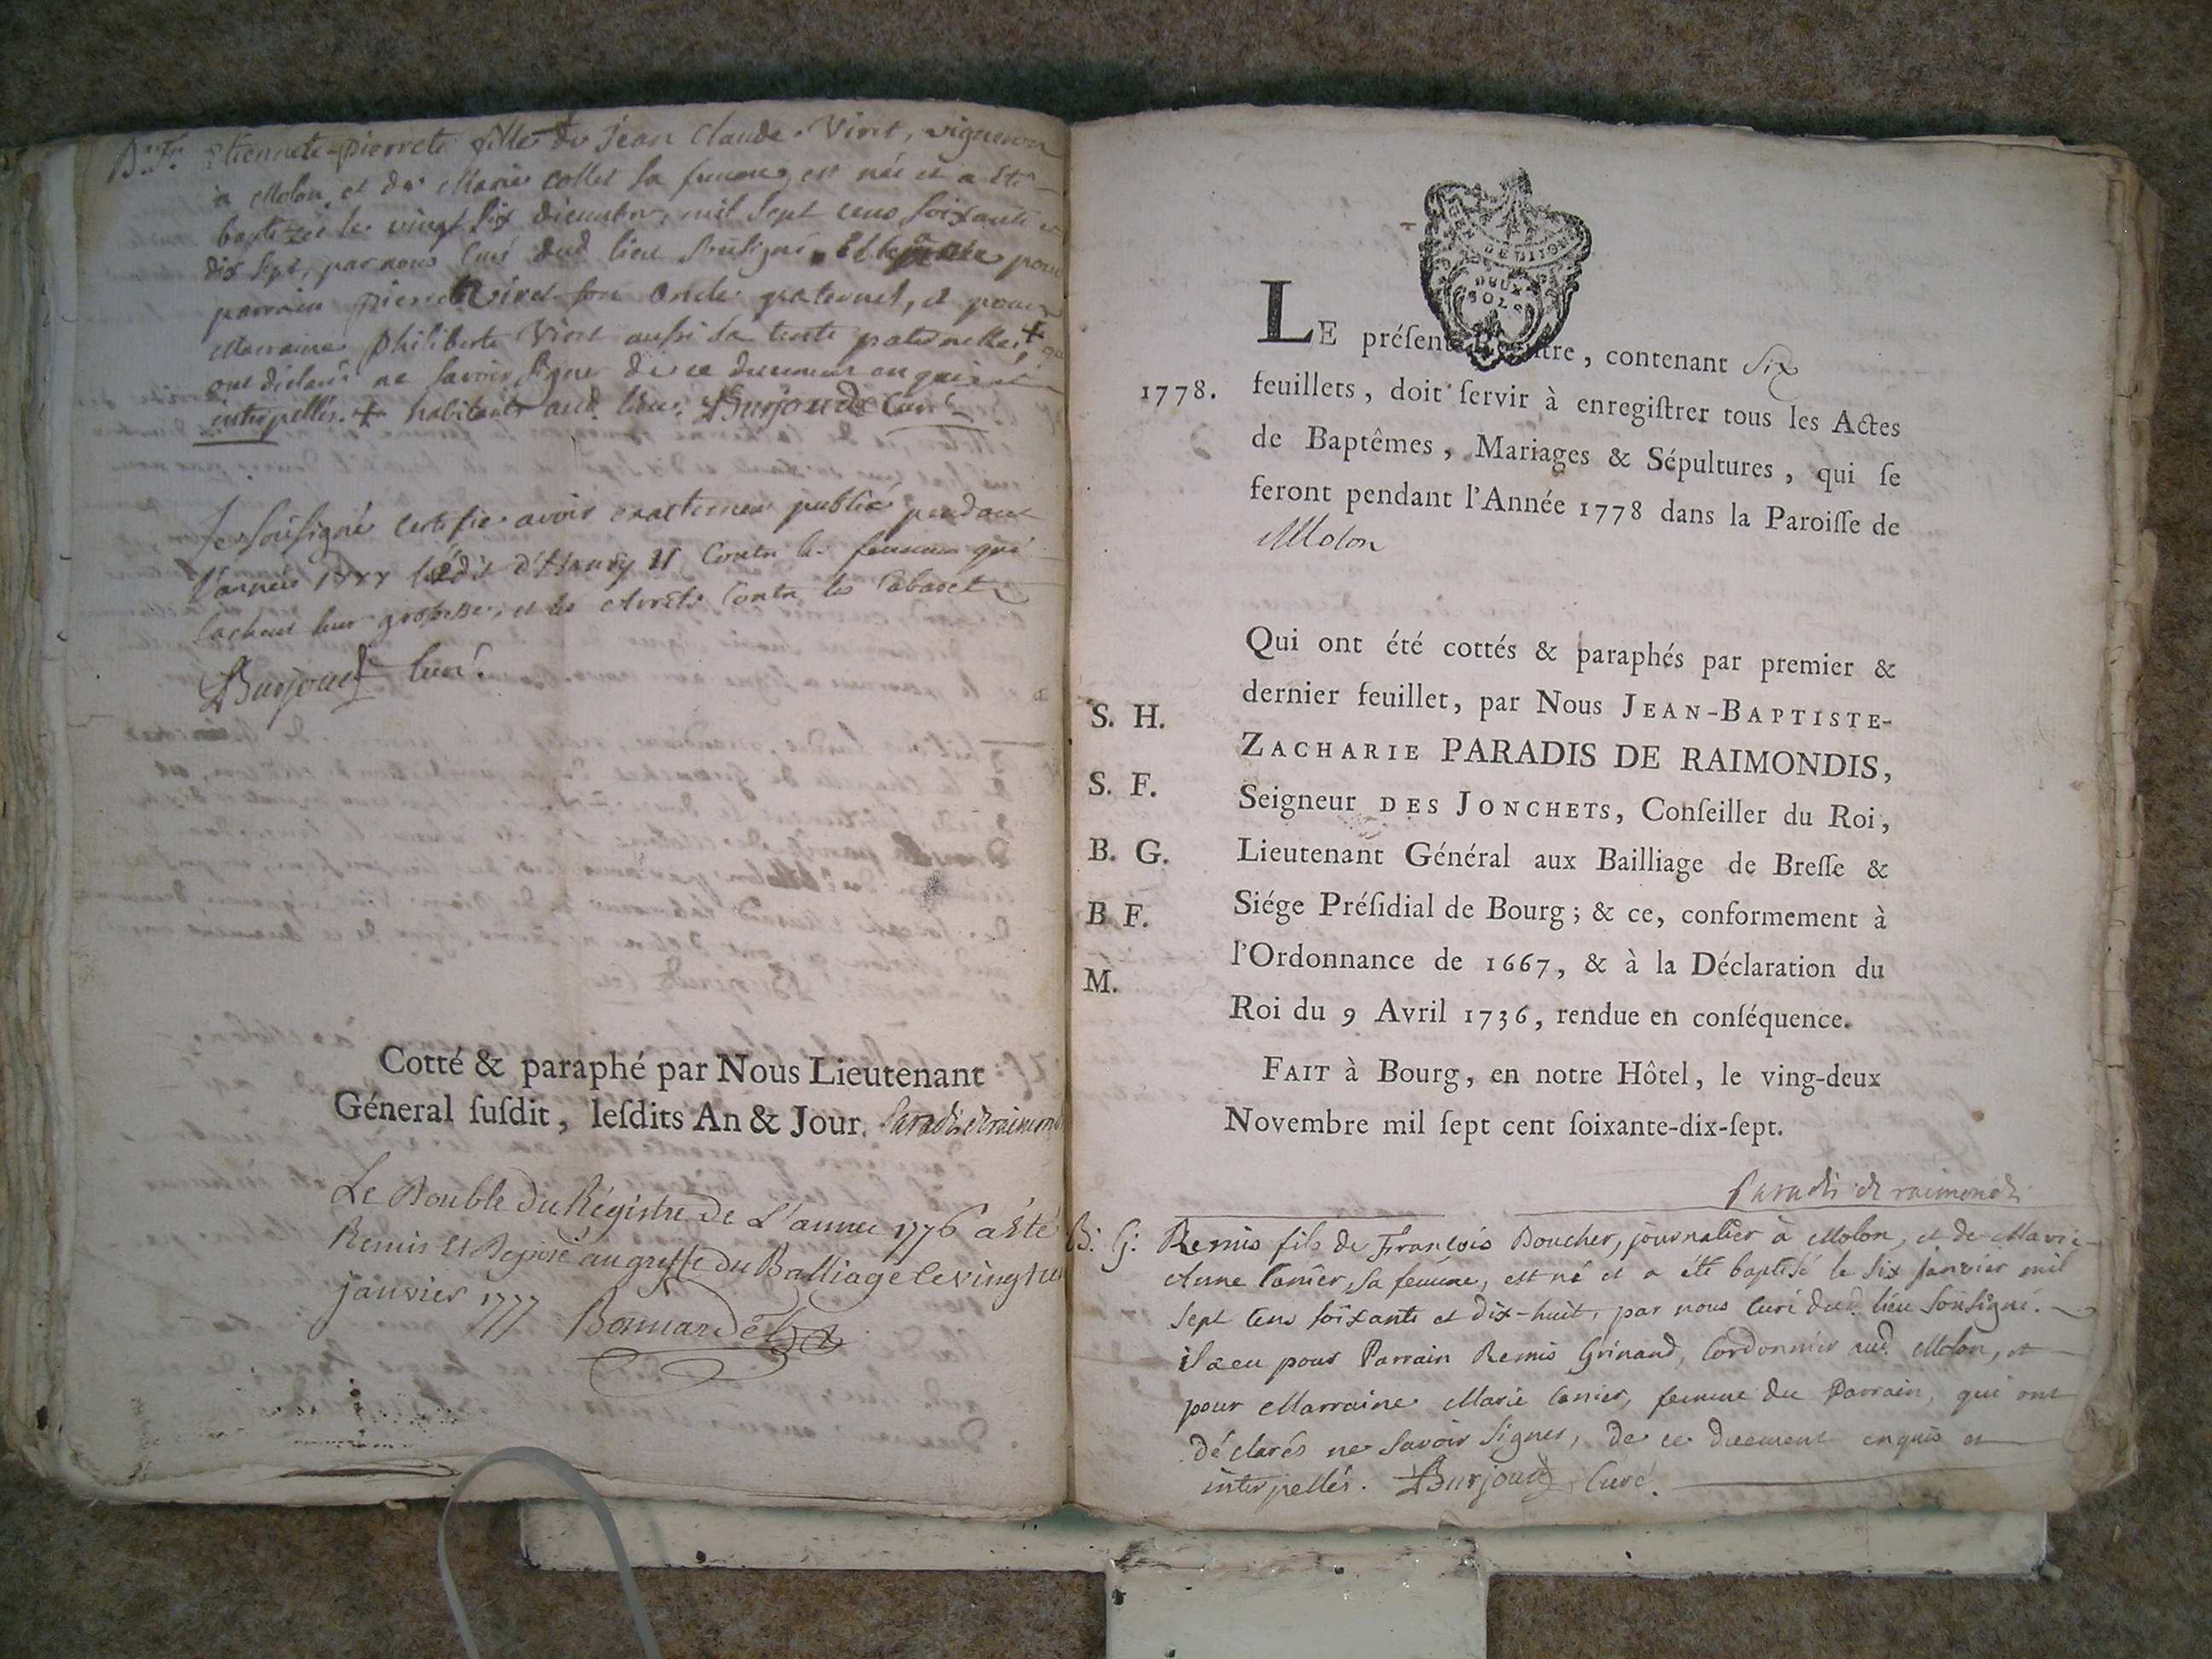 B. F. Etiennete-pierrete fille de Jean Claude Viret, vigneron
à Molon, et de Marie Collet sa femme, est née et a été
baptizée le vingt six decembre, mil sept cens soixante et
dix sept, par nous Curé dud. lieu soussigné. Elle pour
parrain pierre Viret son oncle paternel, et pour
Marraine philiberte Viret aussi sa tente paternelle, + qui
ont déclaré ne savoir signer de ce duement enquis et
interpellés. + habitants aud. lieu. Burjoud Curé
Je soussigné certifie avoir exactement publié pendant
l'année 1777 l'édit d'Henry II contre les femmes qui
cachent leur grossesse, et les Arrêts contre les Cabarets
Burjoud Curé.
Cotté & paraphé par Nous Lieutenant
Géneral ſuſdit, leſdits An & Jour. Paradis de raimondis
Le Double du Régistre de L'année 1776 a été
Remis et Deposé au greffe du Balliage le vingt un
janvier 1777 Bonnardel
EN DE DIJON
DEUX
SOLS
LE préſent Regiſtre, contenant Six
1778. feuillets, doit ſervir à enregiſtrer tous les Actes
de Baptêmes, Mariages & Sépultures, qui ſe
feront pendant l'Année 1778 dans la Paroiſſe de
Molon
Qui ont été cottés & paraphés par premier &
dernier feuillet, par Nous JEAN-BAPTISTE-
S. H. ZACHARIE PARADIS DE RAIMONDIS,
S. F. Seigneur DES JONCHETS, Conſeiller du Roi,
B. G. Lieutenant Général aux Bailliage de Breſſe &
B F. Siége Préſidial de Bourg; & ce, conformement à
M. l'Ordonnance de 1667, & à la Déclaration du
Roi du 9 Avril 1736, rendue en conſéquence.
FAIT à Bourg, en notre Hôtel, le ving-deux
Novembre mil ſept cent ſoixante-dix-ſept.
Paradis de raimondis
B. G. Remis fils de François Boucher, journalier à Molon, et de Marie-
Anne Canier, sa femme, est né et a été baptisé le six janvier mil
sept cens soixante et dix-huit, par nous Curé dud. lieu soussigné.
il a eu pour Parrain Remis Grinand, Cordonnier aud. Molon, et
pour Marraine Marie Canier, femme du Parrain, qui ont
déclarés ne savoir signer, de ce duement enquis et
interpellés. Burjoud Curé.